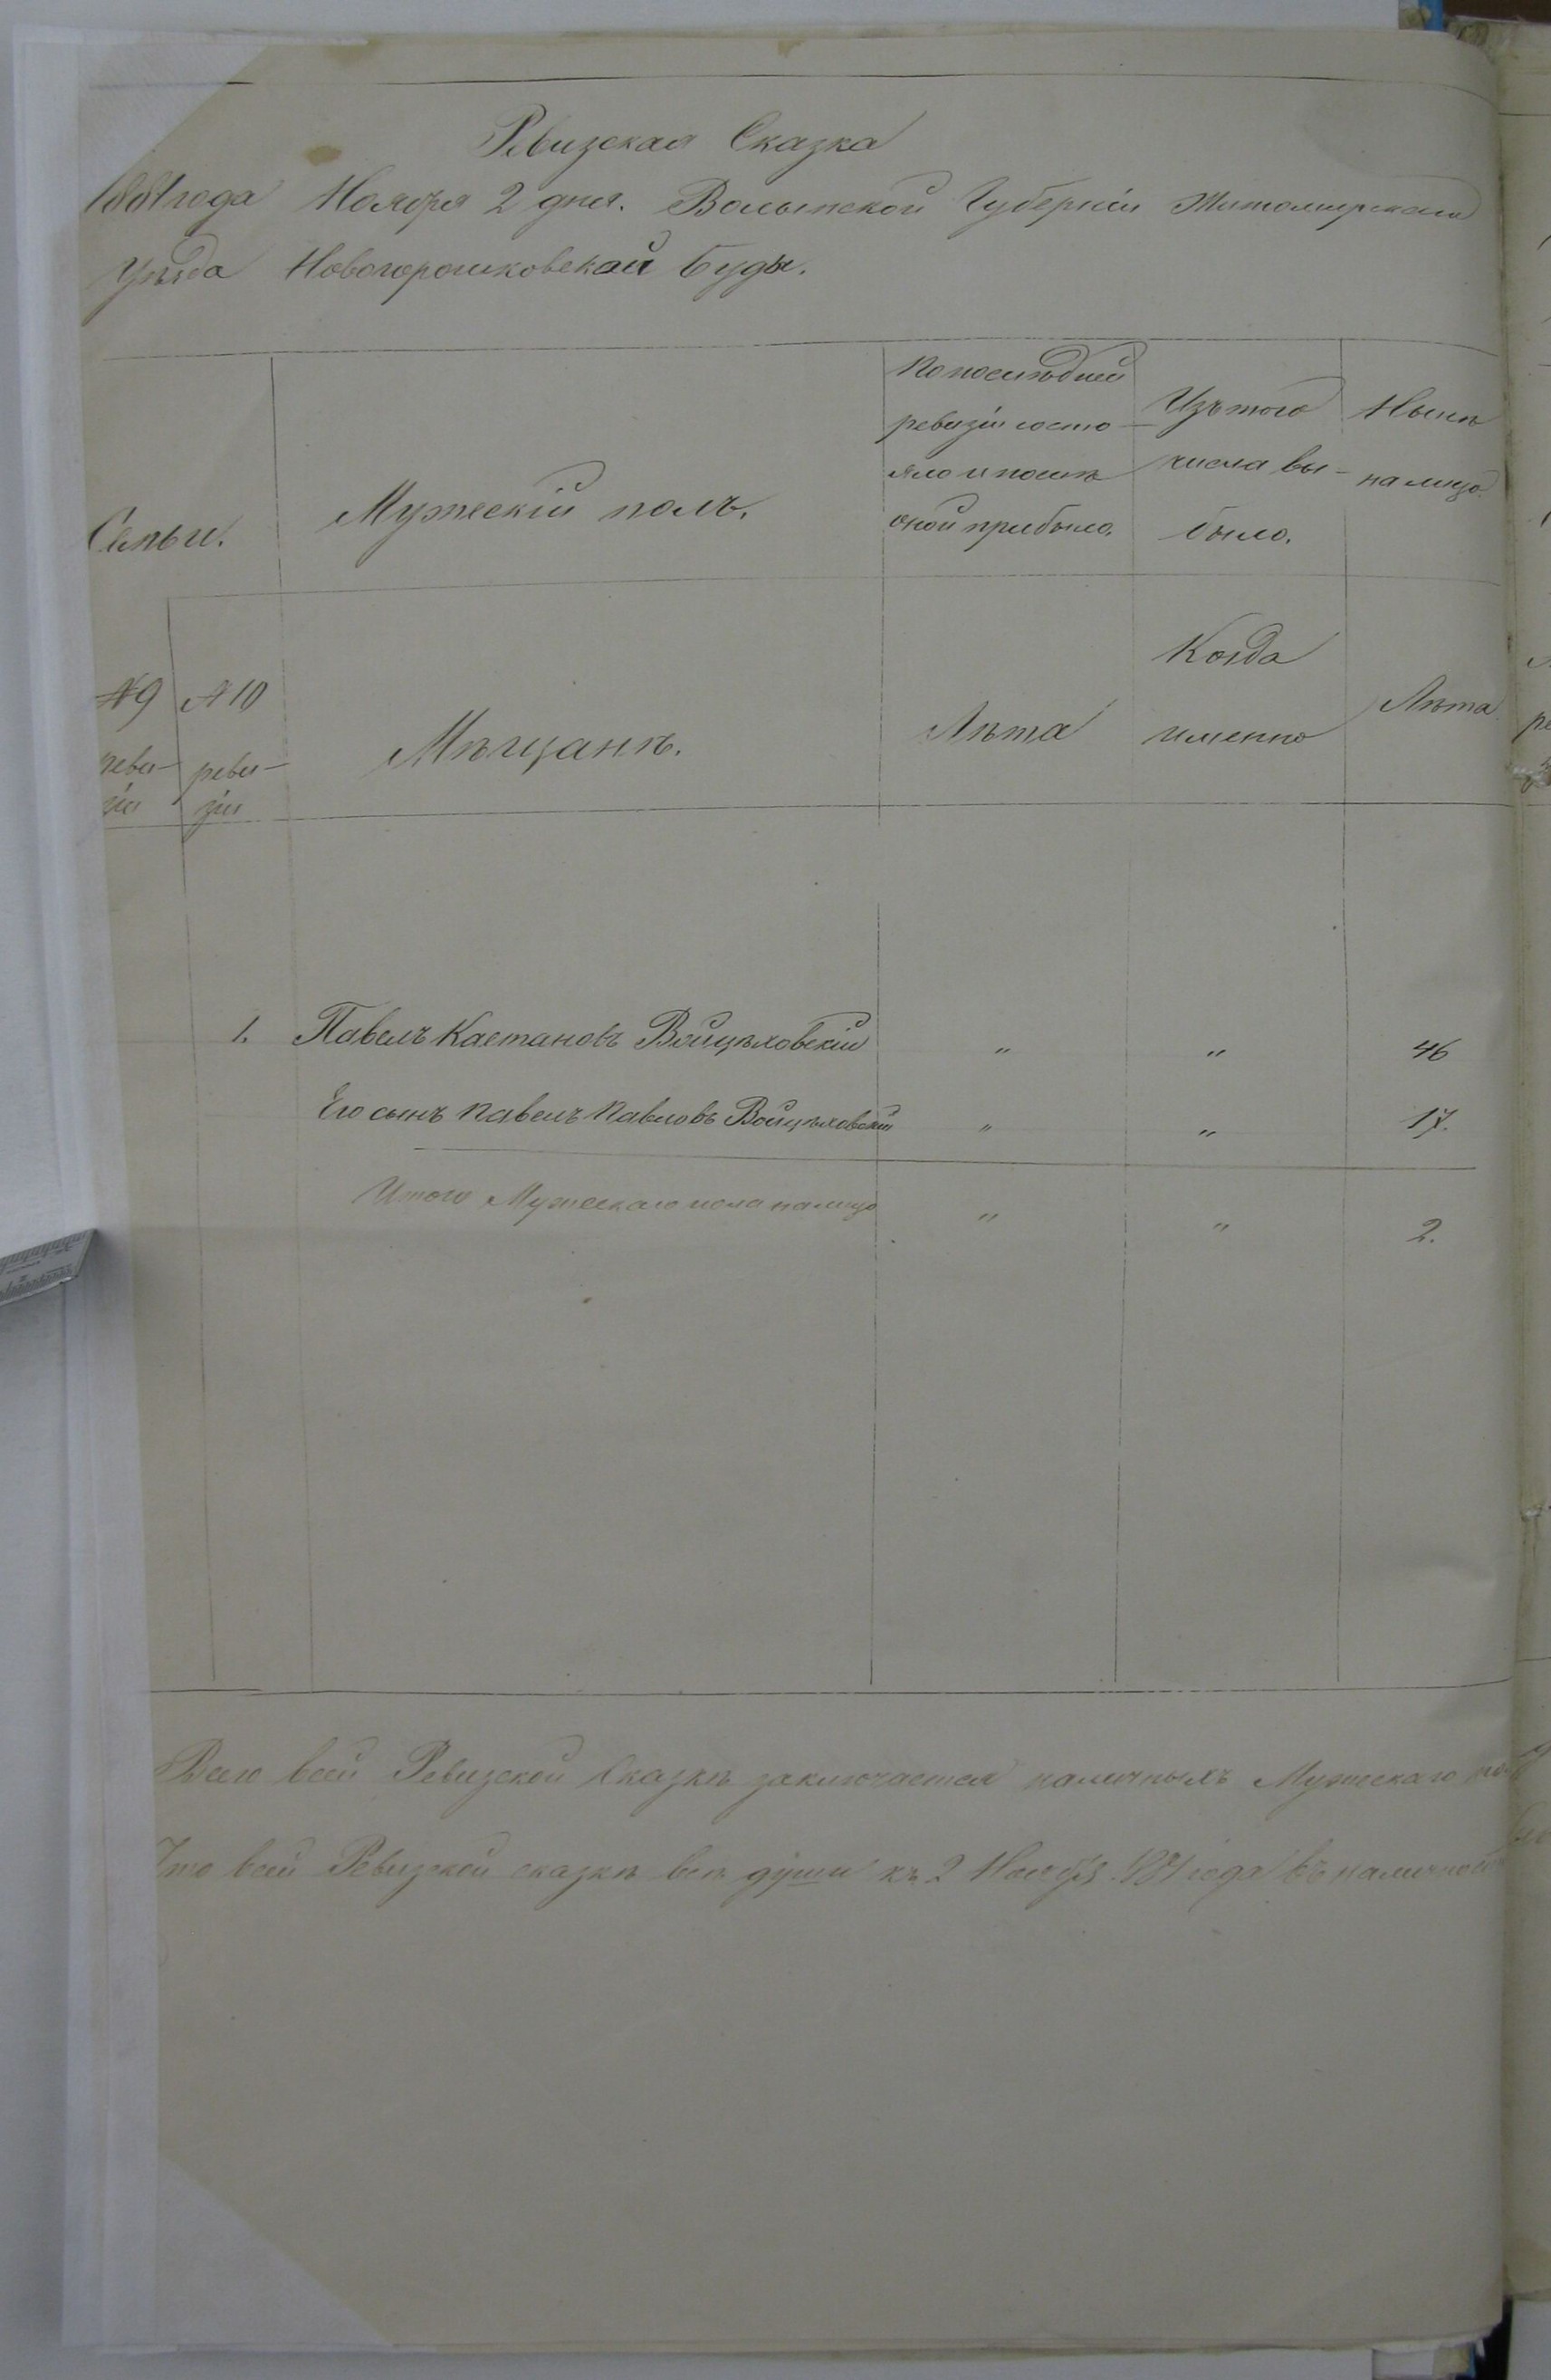 Ревизская Сказка
1881 года Ноября 2 дня. Волынской Губерніи Житомирскаго
Уѣзда Новогорошковской Буды.
Семьи.
Мужескій полъ.
По послѣдней
ревизіи состо-
яло и послѣ
оной прибыло.
Изъ того
числа вы-
было.
Нынѣ
на лицо.
№ 9
реви-
зіи
№ 10
реви-
зіи
Мѣщанъ.
Лѣта
Когда
именно
Лѣта
1. Павелъ Каетановъ Войцѣховскій " " 46
Его сынъ Павелъ Павловъ Войцѣховскій " " 17.
Итого Мужескаго пола налицо " " 2.
Всего в сей Ревизской Сказкѣ заключается наличныхъ Мужескаго
Что в сей Ревизской сказкѣ всѣ души къ 2 Ноября 1881 года въ